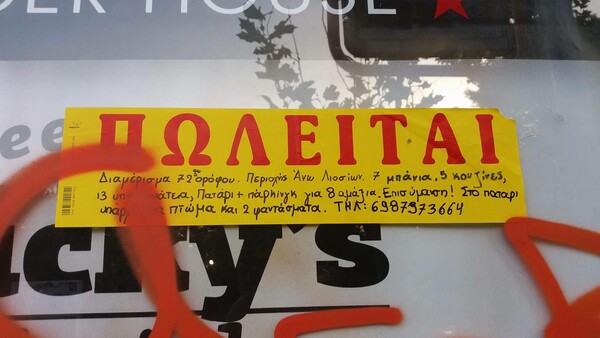 DER HOUSE
ΠΩΛΕΙΤΑΙ
Διαμέρισμα 72ου ορόφου. Περιοχής Άνω Λιοσίων. 7 μπάνια, 5 κουζίνες,
13 Πατάρι + πάρκινγκ για 8 αμάξια. Επισήμανση! Στο πατάρι
πτώμα και 2 φαντάσματα. ΤΗΛ: 6987973664
cky's